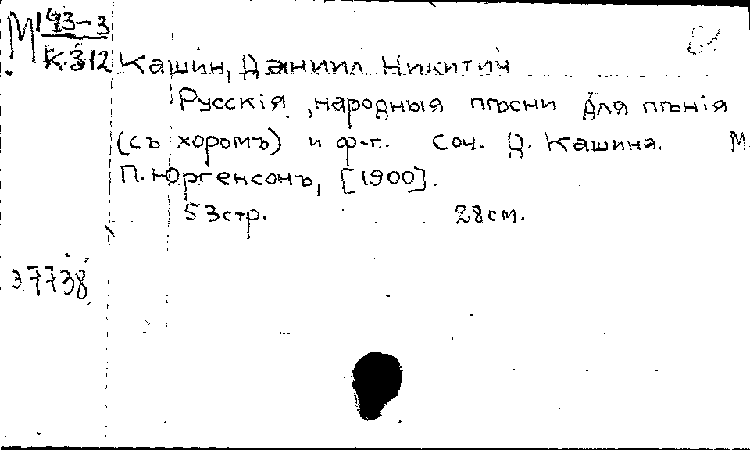 М 193-3
К312 Кашин, Даниил Никитич
Русскія народныя пѣсни для пѣнія
(съ хоромъ) и ф-п. Соч. Д. Кашина. М.
П. Юргенсонъ, [1900].
53стр. 28см.
37738